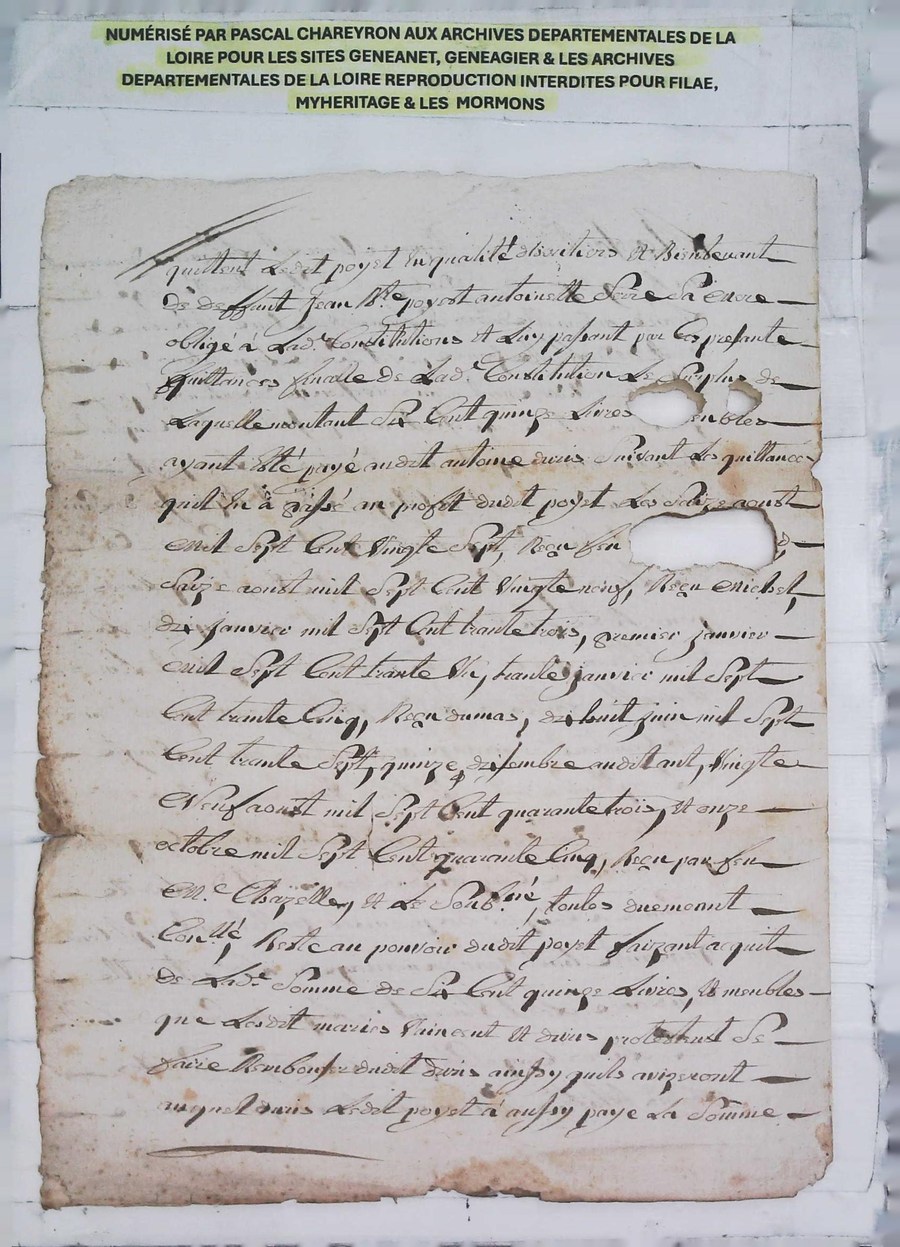 NUMÉRISÉ PAR PASCAL CHAREYRON AUX ARCHIVES DEPARTEMENTALES DE LA
LOIRE POUR LES SITES GENEANET, GENEAGIER & LES ARCHIVES
DEPARTEMENTALES DE LA LOIRE REPRODUCTION INTERDITES POUR FILAE,
MYHERITAGE & LES MORMONS
quittent Ledit poyet En qualité d'heritiers Et Bientenant
De deffunt Jean Bte poyet antoinette Serre Sa mere
obligé à Lade Constitutions Et Luy passant par Ces presante
quittances finalle de Lade Constitution Le Surplus de
Laquelle montant Six Cent quinze Livres eubles
ayant Esté payé audit antoine duris Suivant Les quittances
quil En à passé au profit dudit poyet Les Saize aoust
mil Sept Cent Vingte Sept, Reçu feu
Saize aoust mil Sept Cent Vingte neuf, Reçu michel,
dix Janvier mil Sept Cent trante trois, premier janvier
mil Sept Cent trante Un, trante janvier mil Sept
Cent trante Cinq, Reçu dumas, dix huit juin mil Sept
Cent trante Sept, quinze dixembre audit ant, Vingte
Neuf aoust mil Sept Cent quarante trois, Et onze
octobre mil Sept Cent quarante Cinq, Reçu par feu
Me Chazelle, Et Le Soubné, toutes duemeant
Conllé, Reste au pouvoir dudit poyet faizant acquit
de Lade Somme de Six Cent quinze Livres, Et meubles
que Lesdit mariés Vincent Et duris protestent Se
faire Rembourser dudit duris ainsy quils avizeront
auquel duris Ledit poyet à aussy payé La Somme